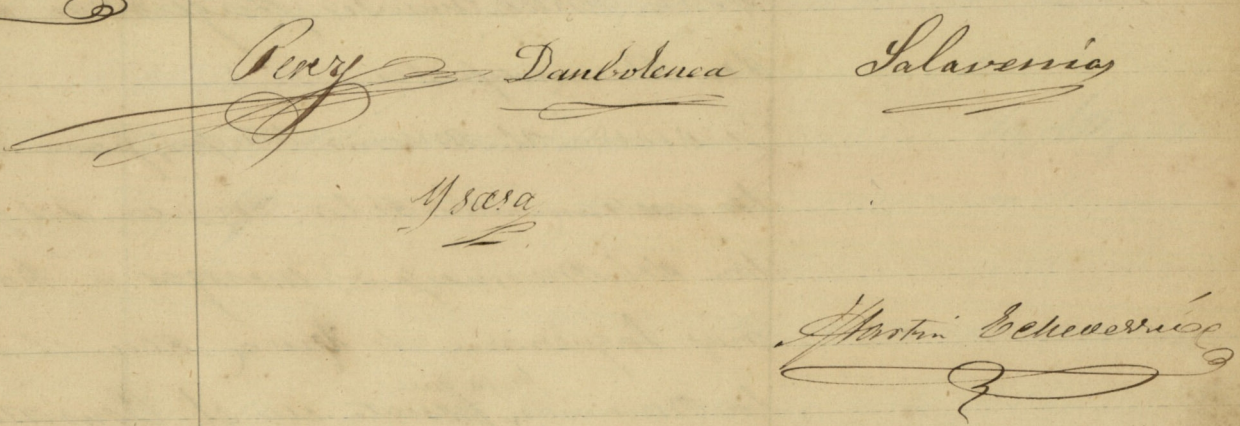 Perez Danbolenea Salaverria
Ysasa
Martin Echeverría